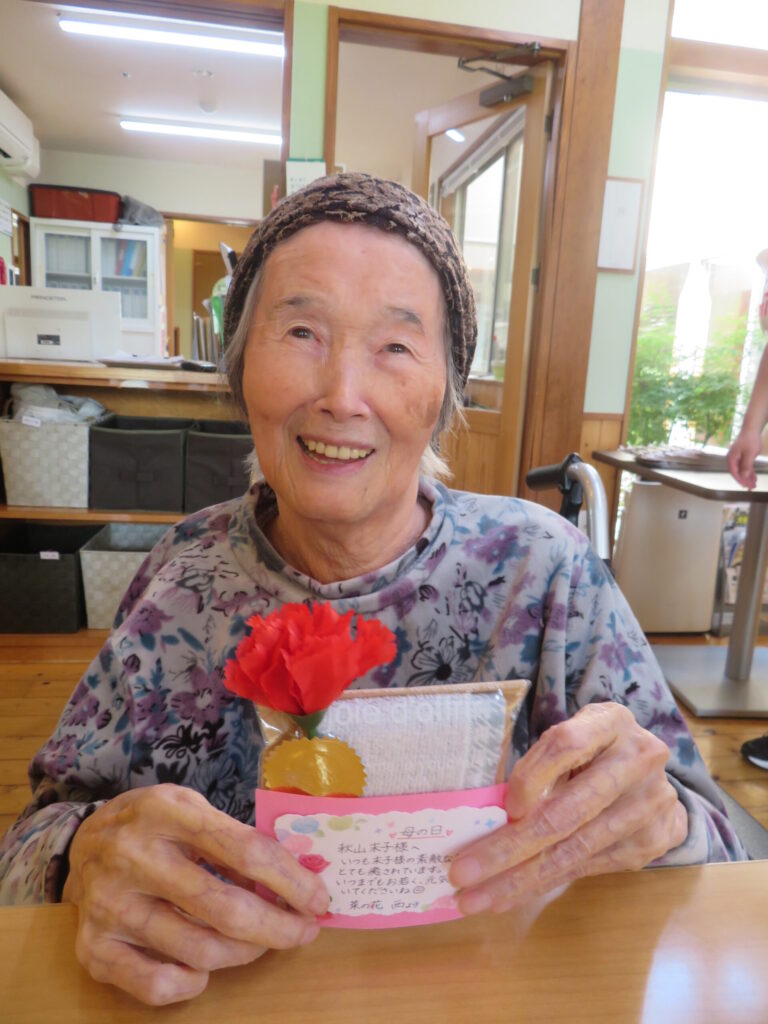 PRINCETON
母の日
秋山末子様へ
いつも末子様の素敵な
とても癒されています。
いつまでもお若く、元気
いてくださいね
菜の花 西より